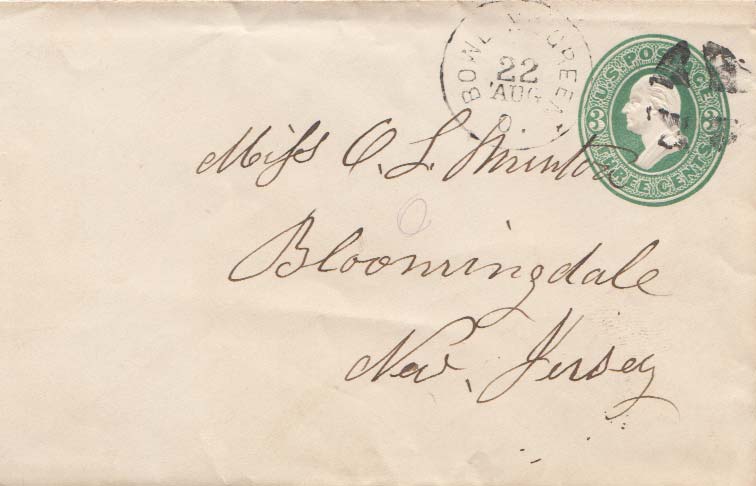 BOWLING GREEN
22
AUG
O.
U.S. POSTAGE
3 3
THREE CENTS
Miss O. L. Munton
Bloomingdale
New Jersey